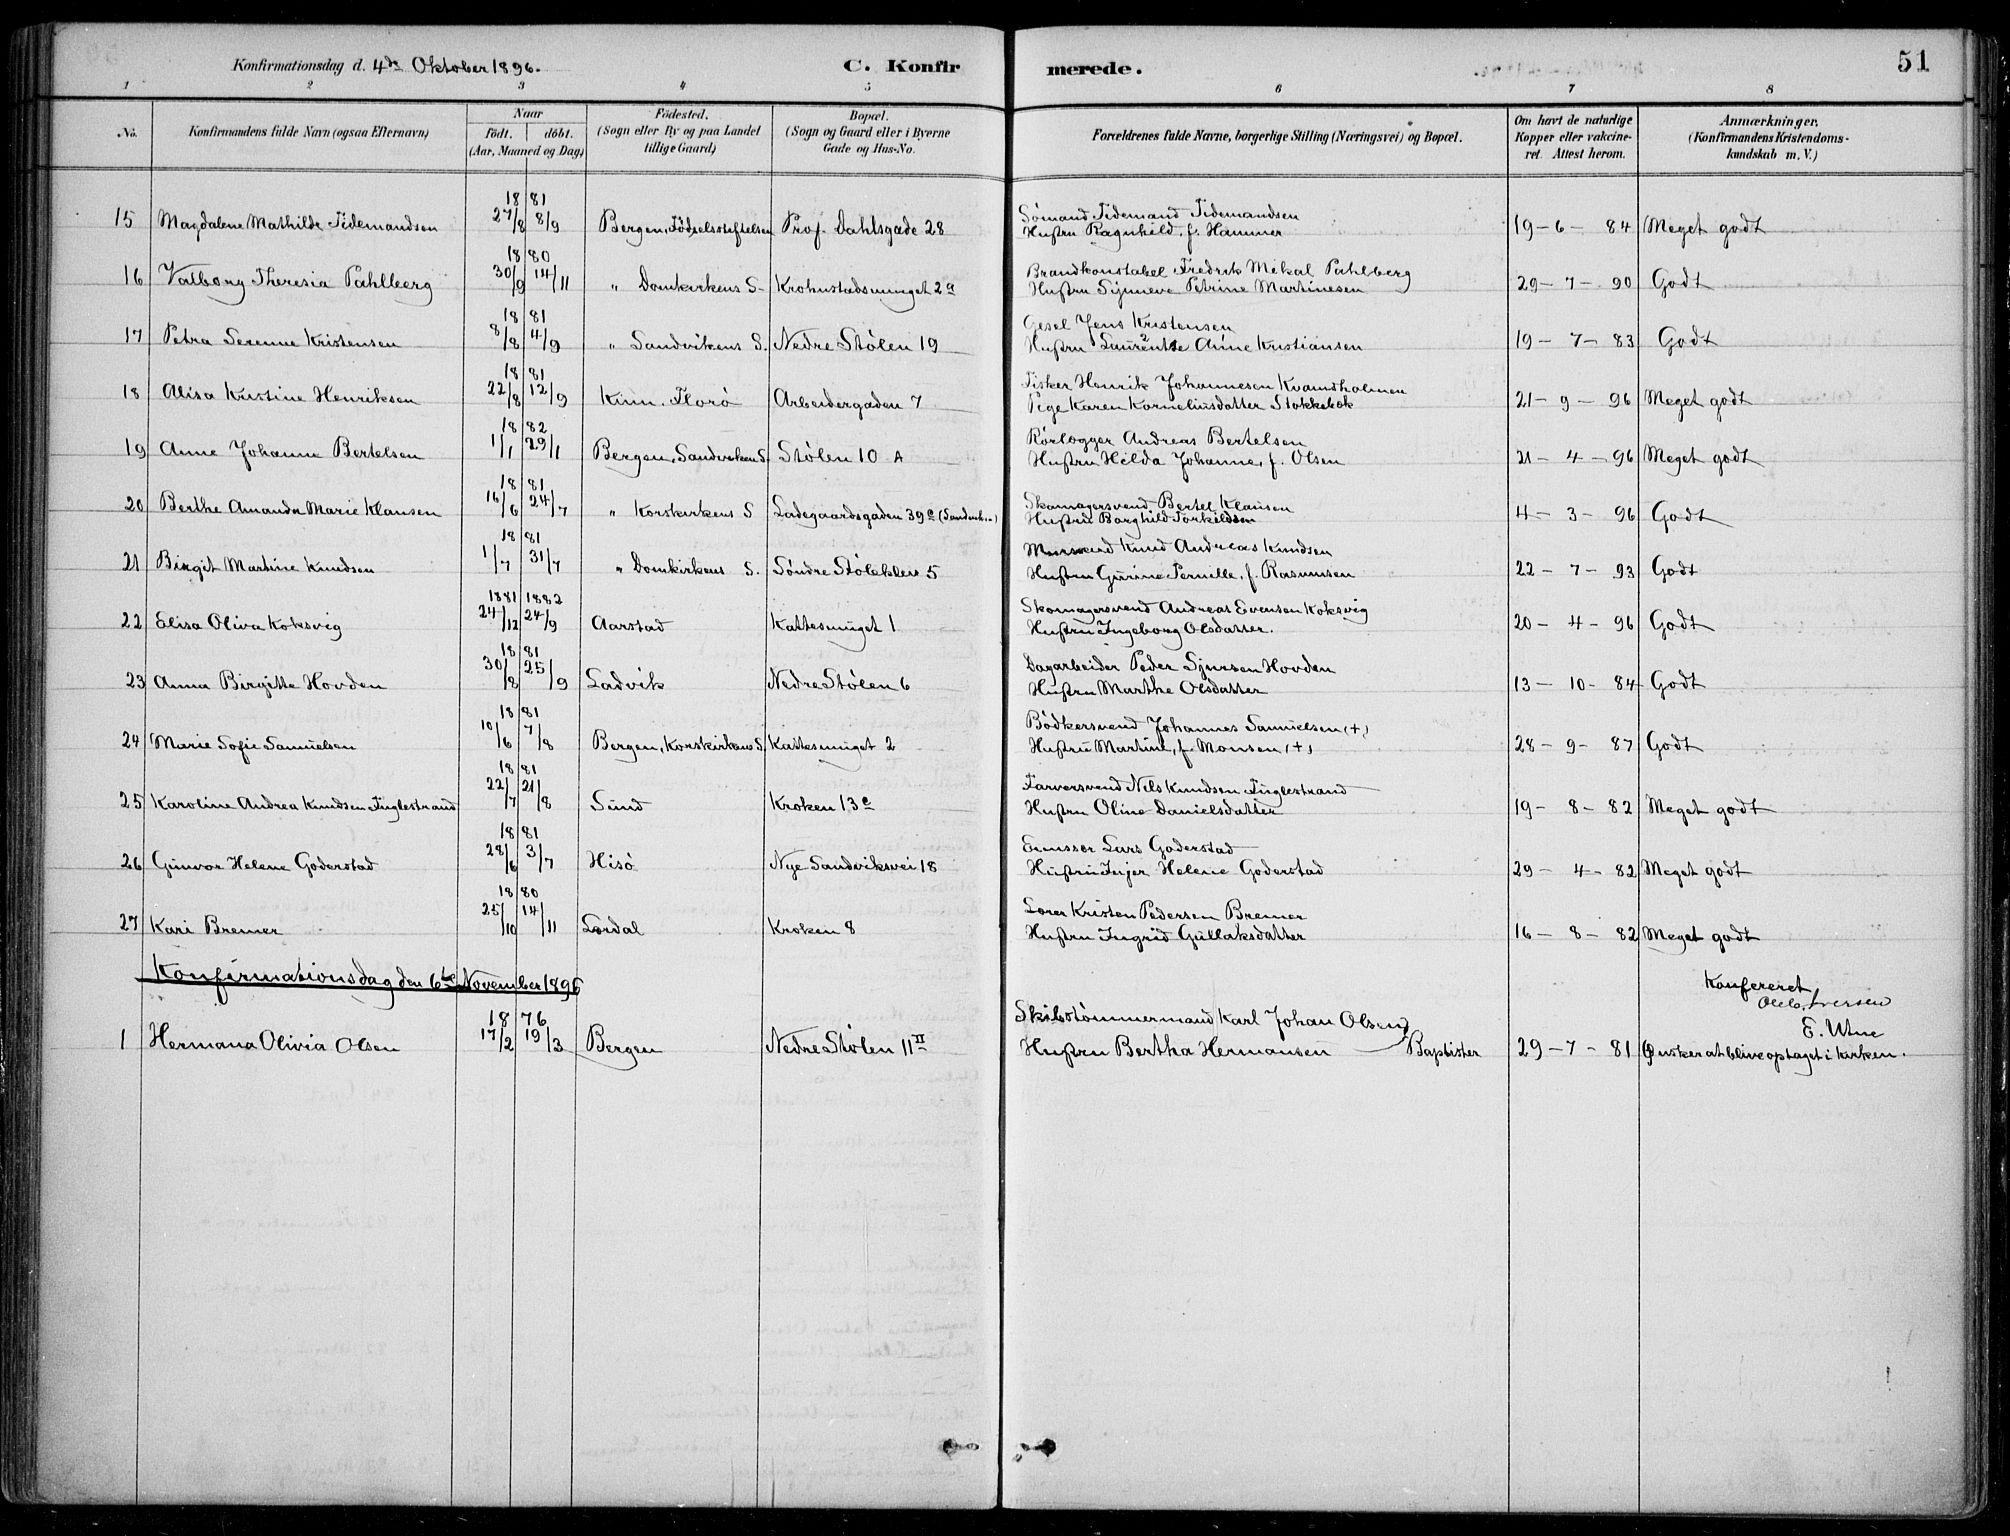 Konfirmationsdag d. 4de Oktober 1896.
C. Konfirmerede.
51
1 2 3 4 5 6 7 8
No. Konfirmandens fulde Navn (ogsaa Efternavn) Naar født. døbt. (Aar, Maaned og Dag) Fødested. (Sogn eller By og paa Landet tillige Gaard) Bopæl. (Sogn og Gaard eller i Byerne Gade og Hus-No. Forældrenes fulde Navne, borgerlige Stilling (Næringsvei) og Bopæl. Om havt de naturlige Kopper eller vakcineret. Attest herom. Anmærkninger. (Konfirmandens Kristendomskundskab m. V.)
18 81
15 Magdalene Mathilde Tidemandsen 27/8 8/9 Bergen, Fødselsstiftelsen Prof. Dahlsgade 28 Sømand Tidemand Tidemandsen
Hustru Ragnhild, f. Hammer 19-6-84 Meget godt
18 80
16 Valborg Theresia Pahlberg 30/9 14/11 " Domkirkens S. Krohnstadsmuget 2a Brandkonstabel Fredrik Mikal Pahlberg
Hustru Synneve Petrine Martinesen 29-7-90 Godt
18 81
17 Petra Serenne Kristensen 8/8 4/9 " Sandvikens S. Nedre Stølen 19 Gesel Jens Kristensen
Hustru Laurentse Anne Kristiansen 19-7-83 Godt
18 81
18 Alisa Kristine Henriksen 22/8 12/9 Kinn. Florø Arbeidergaden 7 Fisker Henrik Johannesen Kvamsholmen
Pige Karen Korneliusdatter Stokkebøk 21-9-96 Meget godt
18 82
19 Anne Johanne Bertelsen 1/1 29/1 Bergen, Sandvikens S. Stølen 10 A Rørlægger Andreas Bertelsen
Hustru Hilda Johanne, f. Olsen 21-4-96 Meget godt
18 81
20 Berthe Amanda Marie Klausen 16/6 24/7 " Korskirkens S Ladegaardsgaden 39c Skomagersvend Bertel Klausen
Hustru Borghild Torkildsen 4-3-96 Godt
18 81
21 Birgit Martine Knudsen 1/7 31/7 " Domkirkens S. Søndre Stølekleiv 5 Knud Andreas Knudsen
Hustru Gurine Pernille, f. Rasmusen 22-7-93 Godt
1881 1882
22 Elisa Oliva Koksvig 24/12 24/9 Aarstad Kattesmuget 1 Skomagersvend Andreas Evensen Koksvig
Hustru Ingeborg Olsdatter. 20-4-96 Godt
18 81
23 Anna Birgitte Hovden 30/8 25/9 Ladvik Nedre Stølen 6 Dagarbeider Peder Sjursen Hovden
Hustru Marthe Olsdatter 13-10-84 Godt
18 81
24 Marie Sofie Samuelsen 10/6 7/8 Bergen, Korskirkens S. Kattesmuget 2 Bødkersvend Johannes Samuelsen (+)
Hustru Martine, f. Monsen (+) 28-9-87 Godt
18 81
25 Karoline Andrea Knudsen Fuglestrand 22/7 21/8 Sund Kroken 13c Farversvend Nils Knudsen Fuglestrand
Hustru Oline Danielsdatter 19-8-82 Meget godt
18 81
26 Gunvor Helene Goderstad 28/6 3/7 Hisø Nye Sandviksvei 18 Lars Goderstad
Hustru Inger Helene Goderstad 29-4-82 Meget godt
18 80
27 Kari Bremer 25/10 14/11 Lærdal Kroken 8 Lærer Kristen Pedersen Bremer
Hustru Ingrid Gullaksdatter 16-8-82 Meget godt
Konfirmationsdag den 6te November 1896
Konfereret
Iversen
E. Utne
18 76
1 Hermana Olivia Olsen 17/2 19/3 Bergen Nedre Stølen 11 II Skibstømmermand Karl Johan Olsen
Hustru Bertha Hermansen Baptister 29-7-81 Ønsker at blive optaget i Kirken.